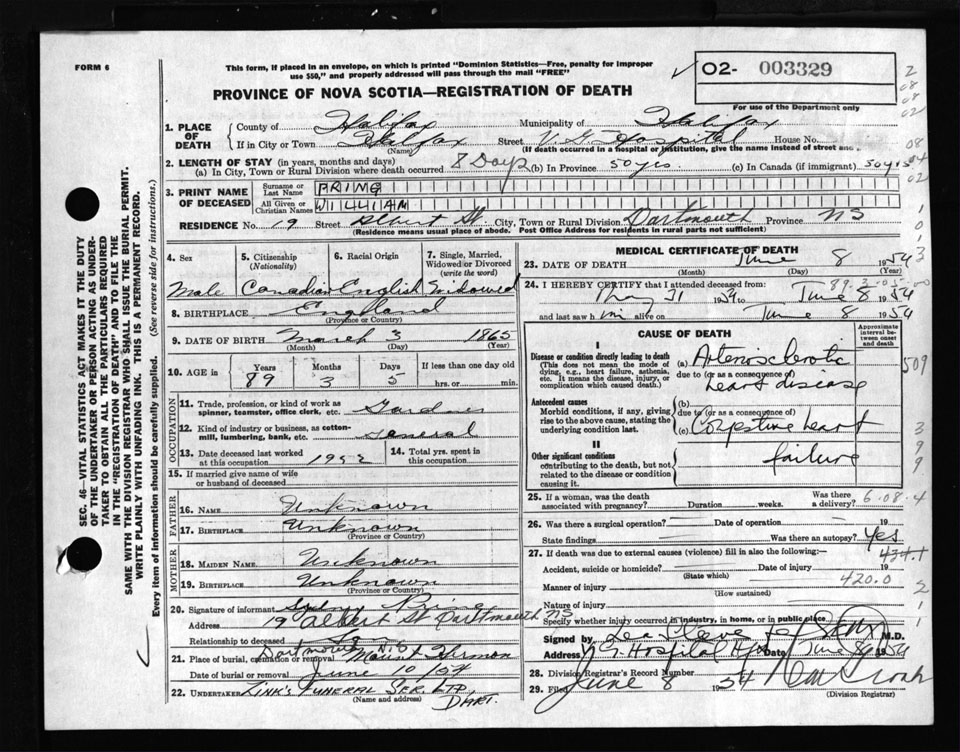 FORM 6
This form, if placed in an envelope, on which is printed "Dominion Statistics—Free, penalty for improper
use $50," and properly addressed will pass through the mail "FREE"
02- 003329
For use of the Department only
PROVINCE OF NOVA SCOTIA—REGISTRATION OF DEATH
1. PLACE OF DEATH
County of Halifax Municipality of Halifax
If in City or Town Halifax Street V.G. Hospital House No.
(Name) (If death occurred in a hospital or institution, give the name instead of street and
2. LENGTH OF STAY (in years, months and days)
(a) In City, Town or Rural Division where death occurred 8 Days (b) In Province 50 yrs (c) In Canada (if immigrant) 50 yrs
3. PRINT NAME OF DECEASED
Surname or Last Name PRIME
All Given or Christian Names WILLIAM
RESIDENCE No. 19 Street Albert St. City, Town or Rural Division Dartmouth Province NS
(Residence means usual place of abode. Post Office Address for residents in rural parts not sufficient)
4. Sex
Male
5. Citizenship (Nationality)
Canadian
6. Racial Origin
English
7. Single, Married, Widowed or Divorced (write the word)
Widowed
8. BIRTHPLACE England
(Province or Country)
9. DATE OF BIRTH March 3 1865
(Month) (Day) (Year)
10. AGE in Years Months Days If less than one day old
89 3 5 hrs. or min.
OCCUPATION
11. Trade, profession, or kind of work as spinner, teamster, office clerk, etc. Gardner
12. Kind of industry or business, as cotton-mill, lumbering, bank, etc. General
13. Date deceased last worked at this occupation 1952
14. Total yrs. spent in this occupation
15. If married give name of wife or husband of deceased
FATHER
16. NAME Unknown
17. BIRTHPLACE Unknown
(Province or Country)
MOTHER
18. MAIDEN NAME Unknown
19. BIRTHPLACE Unknown
(Province or Country)
20. Signature of informant Sydney Prime
Address 19 Albert St Dartmouth NS
Relationship to deceased
21. Place of burial, cremation or removal Dartmouth N.S. Mount Hermon
Date of burial or removal June 10/54
22. UNDERTAKER ZINK'S FUNERAL SER. LTD, DART.
(Name and address)
MEDICAL CERTIFICATE OF DEATH
23. DATE OF DEATH June 8 1954
(Month) (Day) (Year)
24. I HEREBY CERTIFY that I attended deceased from:
May 31 1954 to June 8 1954
and last saw him alive on June 8 1954
CAUSE OF DEATH
Approximate interval between onset and death
I
Disease or condition directly leading to death
(This does not mean the mode of dying, e.g., heart failure, asthenia, etc. It means the disease, injury, or complication which caused death.)
(a) Arteriosclerotic
due to (or as a consequence of)
heart disease
Antecedent causes
Morbid conditions, if any, giving rise to the above cause, stating the underlying condition last.
(b)
due to (or as a consequence of)
(c) Congestive heart
failure
II
Other significant conditions
contributing to the death, but not related to the disease or condition causing it.
25. If a woman, was the death associated with pregnancy? Duration weeks. Was there a delivery?
6.08.4
26. Was there a surgical operation? Date of operation 19
State findings Was there an autopsy? Yes
27. If death was due to external causes (violence) fill in also the following:—
434.1
Accident, suicide or homicide? Date of injury 19
(State which)
420.0
Manner of injury
(How sustained)
Nature of injury
Specify whether injury occurred in industry, in home, or in public place
Signed by M.D.
Address V.G. Hospital Hfx Date June 8 1954
28. Division Registrar's Record Number
29. Filed June 8 1954
(Division Registrar)
SEC. 46—VITAL STATISTICS ACT MAKES IT THE DUTY
OF THE UNDERTAKER OR PERSON ACTING AS UNDER-
TAKER TO OBTAIN ALL THE PARTICULARS REQUIRED
IN THE "REGISTRATION OF DEATH" AND TO FILE THE
SAME WITH THE DIVISION REGISTRAR WHO SHALL ISSUE THE BURIAL PERMIT.
WRITE PLAINLY WITH UNFADING INK. THIS IS A PERMANENT RECORD.
Every item of information should be carefully supplied. (See reverse side for instructions).